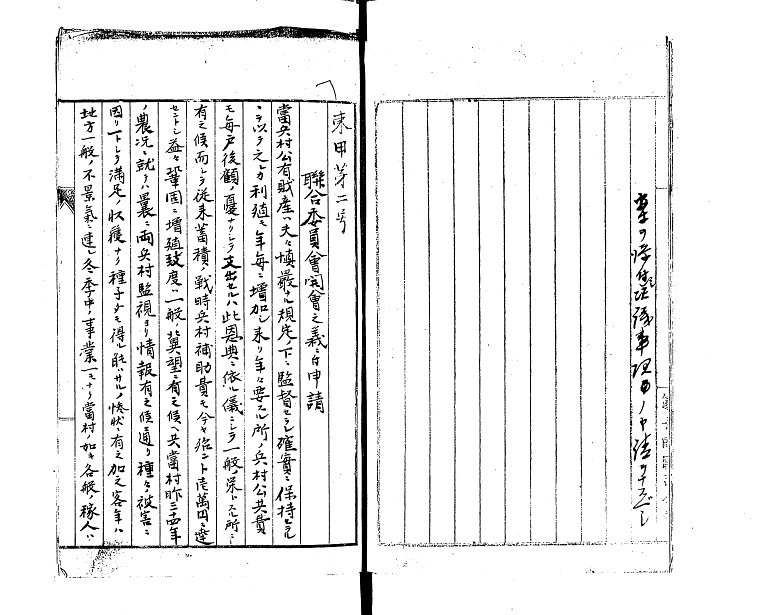 東甲第二号
聯合委員會開會之義ニ付申請
當兵村公有財産ハ夫々慎嚴ナル規定ノ下ニ監督セラレ確實ニ保持セラル
ヲ以テ之レカ利殖モ年毎ニ増加シ来リ年々要スル所ノ兵村公共費
モ毎戸後顧ノ憂ナクシテ支出セルハ此恩典ニ依ル儀ニシテ一般ノ栄トスル所ニ
有之候而シテ従来蓄積ノ戦時兵村補助費モ今ヤ殆ント壱萬円ニ達
セントシ益々鞏固ニ増殖致度ハ一般ノ冀望ニ有之候ヘ共當村昨三十四年
ノ農况ニ就テハ曩ニ両兵村監視ヨリ情報有之候通り種々ノ被害ニ
因リ一トシテ満足ノ収穫ナク種子タモ得ル能ハサルノ惨状ニ有之加之客年ハ
地方一般ノ不景氣ニ連レ冬季中ノ事業一モナク當村ノ如キ各般ノ稼人ハ